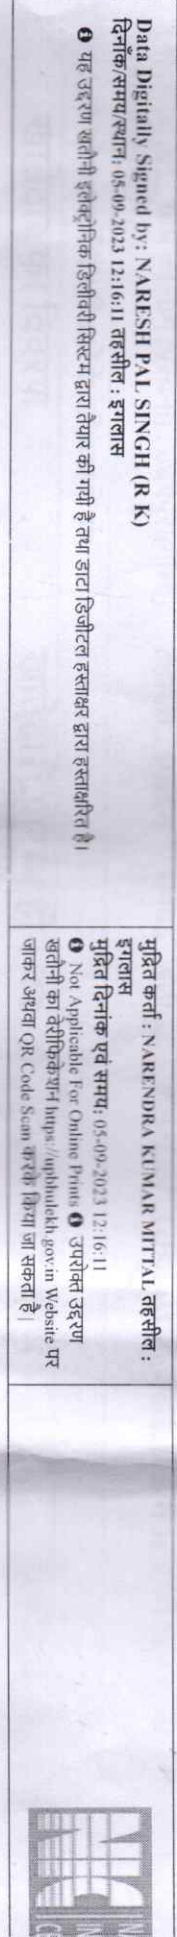 Data Digitally Signed by: NARESH PAL SINGH (R K)
दिनाँक/समय/स्थान: 05-09-2023 12:16:11 तहसील : इगलास
यह उद्दरण खतौनी इलेक्ट्रोनिक डिलीवरी सिस्टम द्वारा तैयार की गयी है तथा डाटा डिजीटल हस्ताक्षर द्वारा हस्ताक्षरित है।
मुद्रित कर्ता : NARENDRA KUMAR MITTAL तहसील :
इगलास
मुद्रित दिनांक एवं समय: 05-09-2023 12:16:11
Not Applicable For Online Prints उपरोक्त उद्दरण
खतौनी का वेरीफिकेशन https://upbhulekh.gov.in Website पर
जाकर अथवा QR Code Scan करके किया जा सकता है|